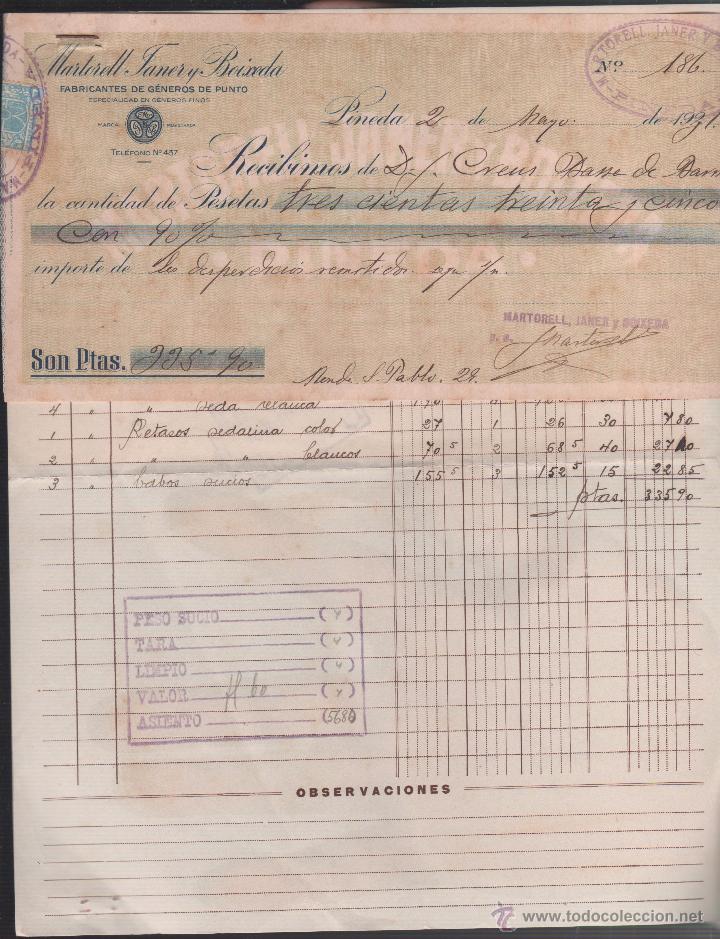 Martorell Janer y Boixeda
FABRICANTES DE GÉNEROS DE PUNTO
ESPECIALIDAD EN GÉNEROS FINOS
MARCA REGISTRADA
TELÉFONO Nº 457
MARTORELL, JANER Y
Nº 186
Pineda 2 de Mayo de 1931
Recibimos de D. J. Creus Basse de Barn
la cantidad de Pesetas tres cientas treinta y cinco
Con 90%
importe de los desperdicios remitidos
MARTORELL, JANER y BOIXEDA
p. a. Martorell
Son Ptas. 335'90
S. Pablo. 29.
4 " " seda blanca
1 " Retasos sedalina color 27 1 26 30 7 80
2 " " " blancos 70 5 2 68 5 40 27 40
3 " Cabos sucios 155 5 3 152 5 15 22 85
Ptas. 335 90
PESO SUCIO (Y)
TARA (Y)
LIMPIO (Y)
VALOR (Y)
ASIENTO (568)
OBSERVACIONES
tc www.todocoleccion.net